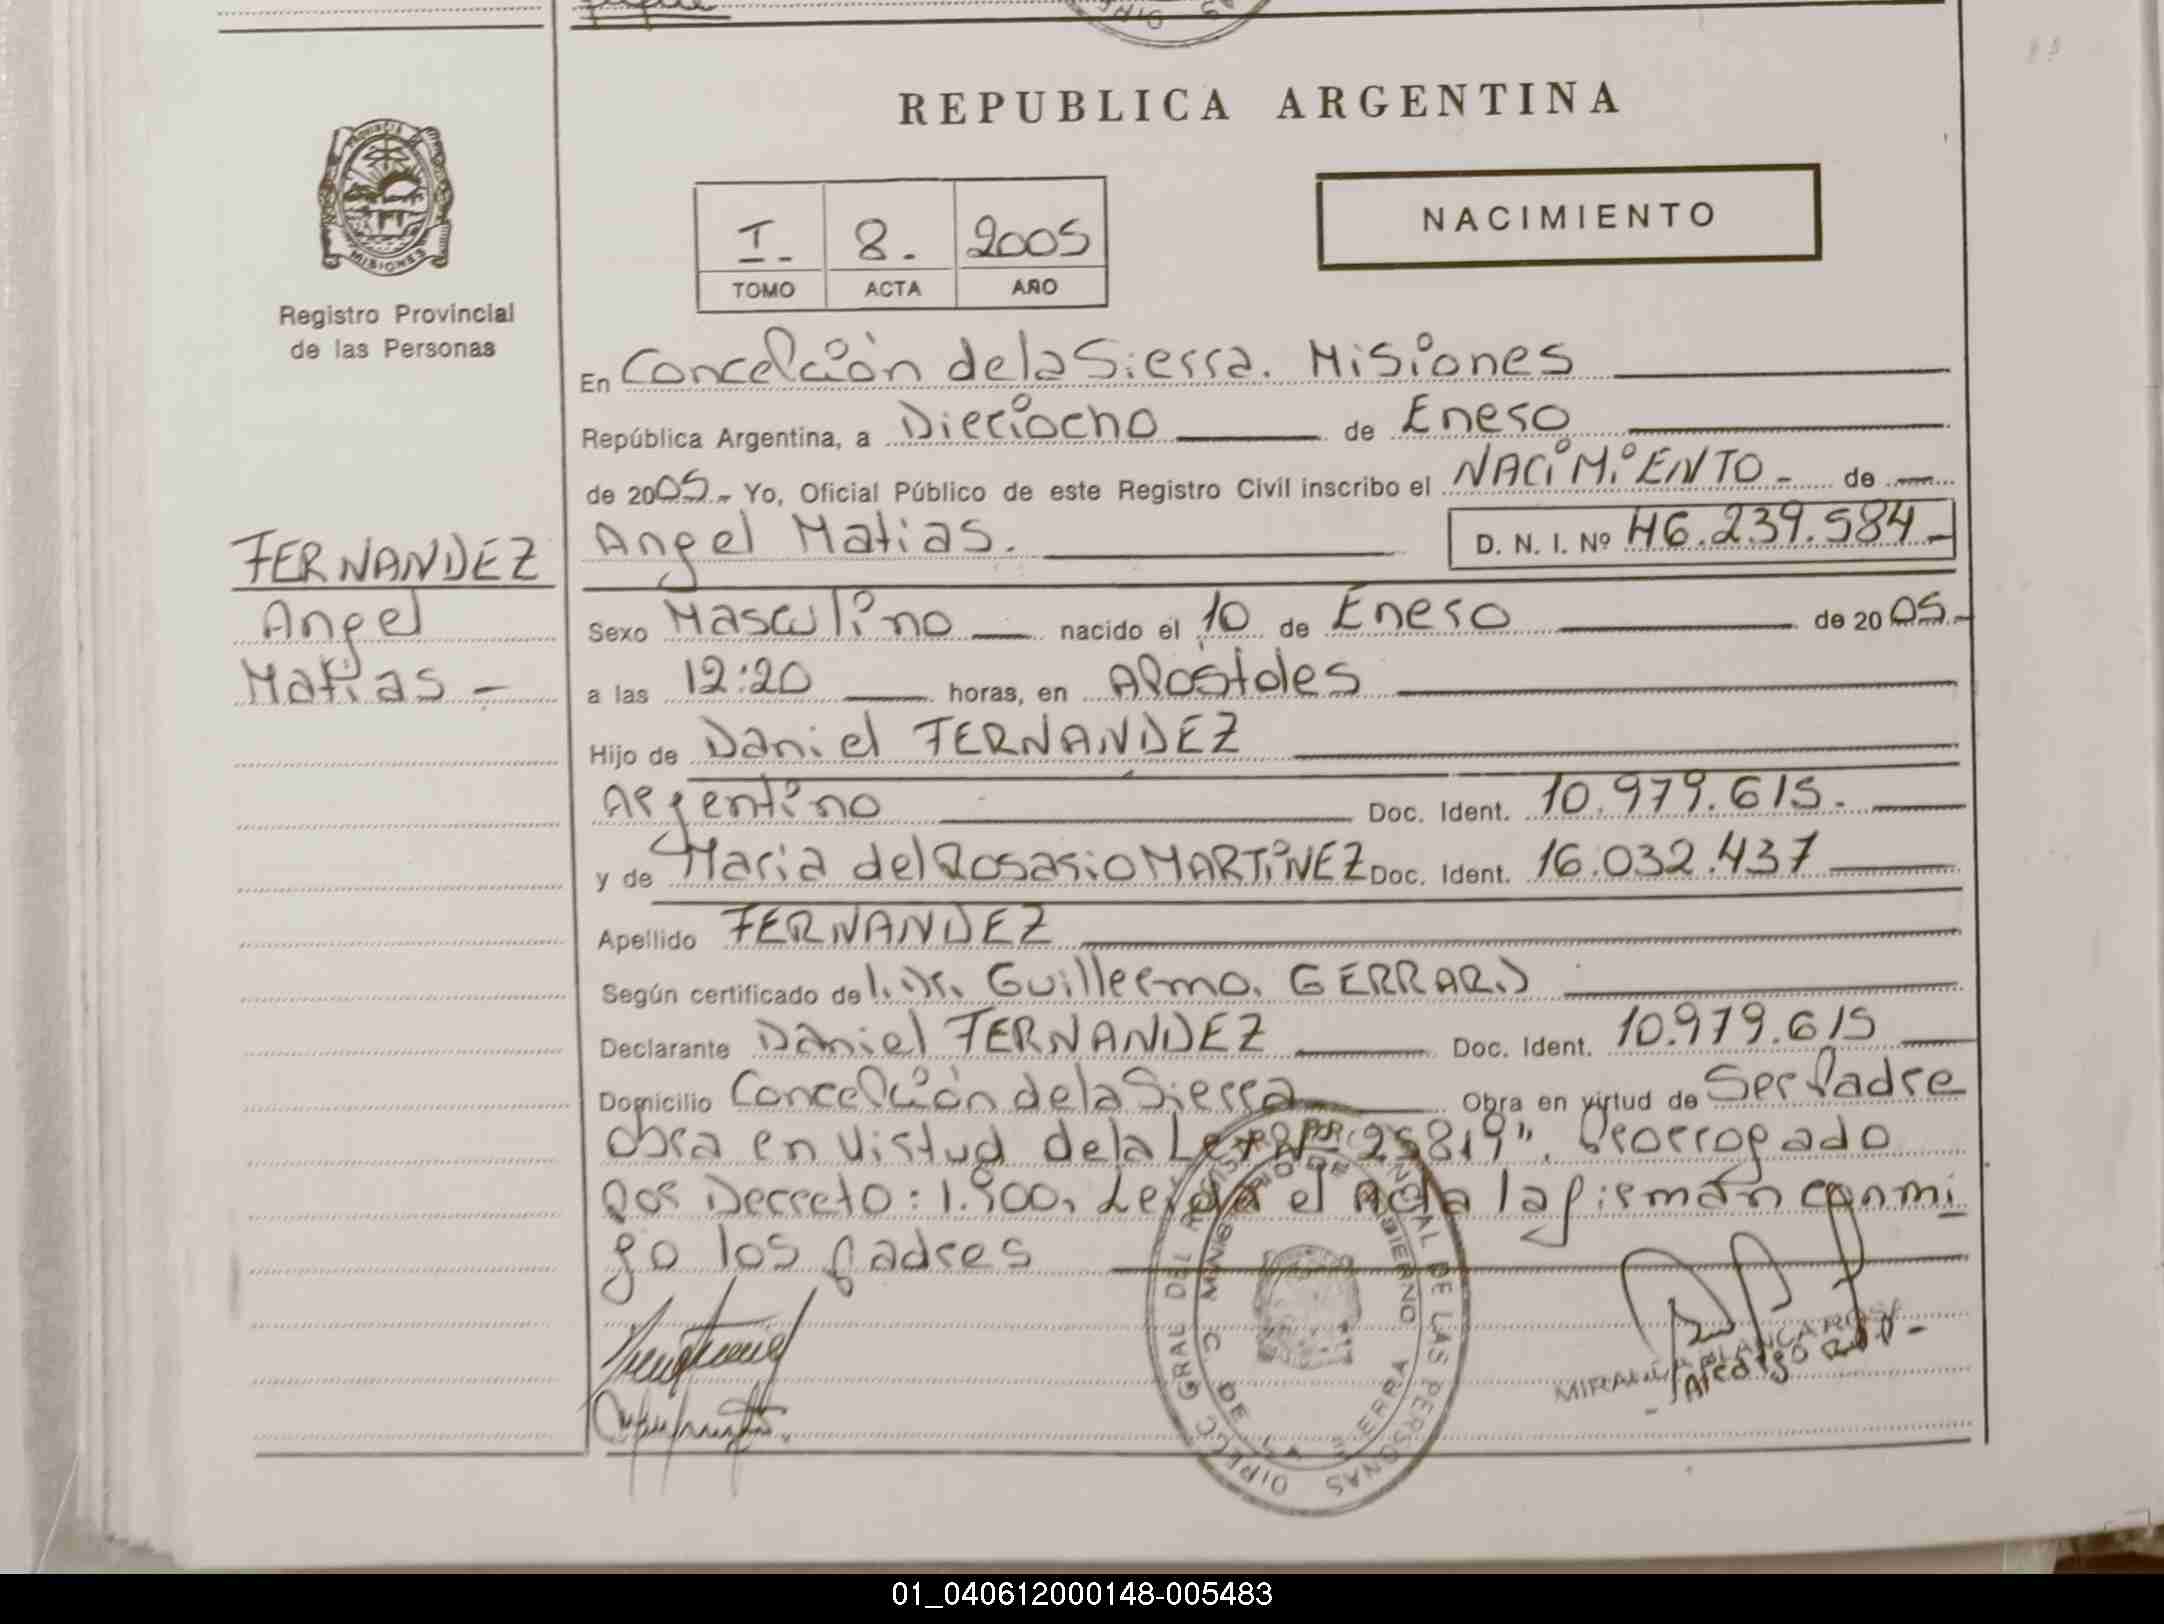 REPUBLICA ARGENTINA
PROVINCIA DE MISIONES
Registro Provincial
de las Personas
I.- 8. 2005
TOMO ACTA AÑO
NACIMIENTO
En Concepción de la Sierra. Misiones
República Argentina, a Dieciocho de Enero
de 2005.- Yo, Oficial Público de este Registro Civil inscribo el NACIMIENTO - de
Angel Matias. D. N. I. Nº 46.239.584-
FERNANDEZ
Angel
Matias -
Sexo Masculino nacido el 10 de Enero de 2005.-
a las 12:20 horas, en Apóstoles
Hijo de Daniel FERNANDEZ
Argentino Doc. Ident. 10.979.615.
y de Maria del Rosario MARTINEZ Doc. Ident. 16.032.437
Apellido FERNANDEZ
Según certificado del. Dr. Guillermo. GERRARD
Declarante Daniel FERNANDEZ Doc. Ident. 10.979.615
Domicilio Concepción de la Sierra Obra en virtud de Ser Padre
obra en virtud de la Ley Nº 25819". Prorrogado
por Decreto: 1.900. Leida el Acta la firmán conmi
go los padres
DIRECC GRAL DEL REGISTRO PROVINCIAL DE LAS PERSONAS
MINISTERIO DE GOBIERNO
C. DE LA SIERRA
01_040612000148-005483